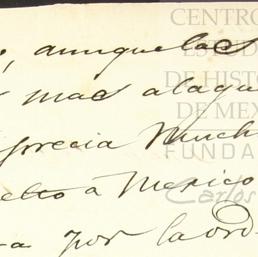 , aunque las
mas alaga
precia Much
elto a Mexico
a por la ord
CENTRO
ES
DE HISTO
DE MEX
FUNDA
Carlos